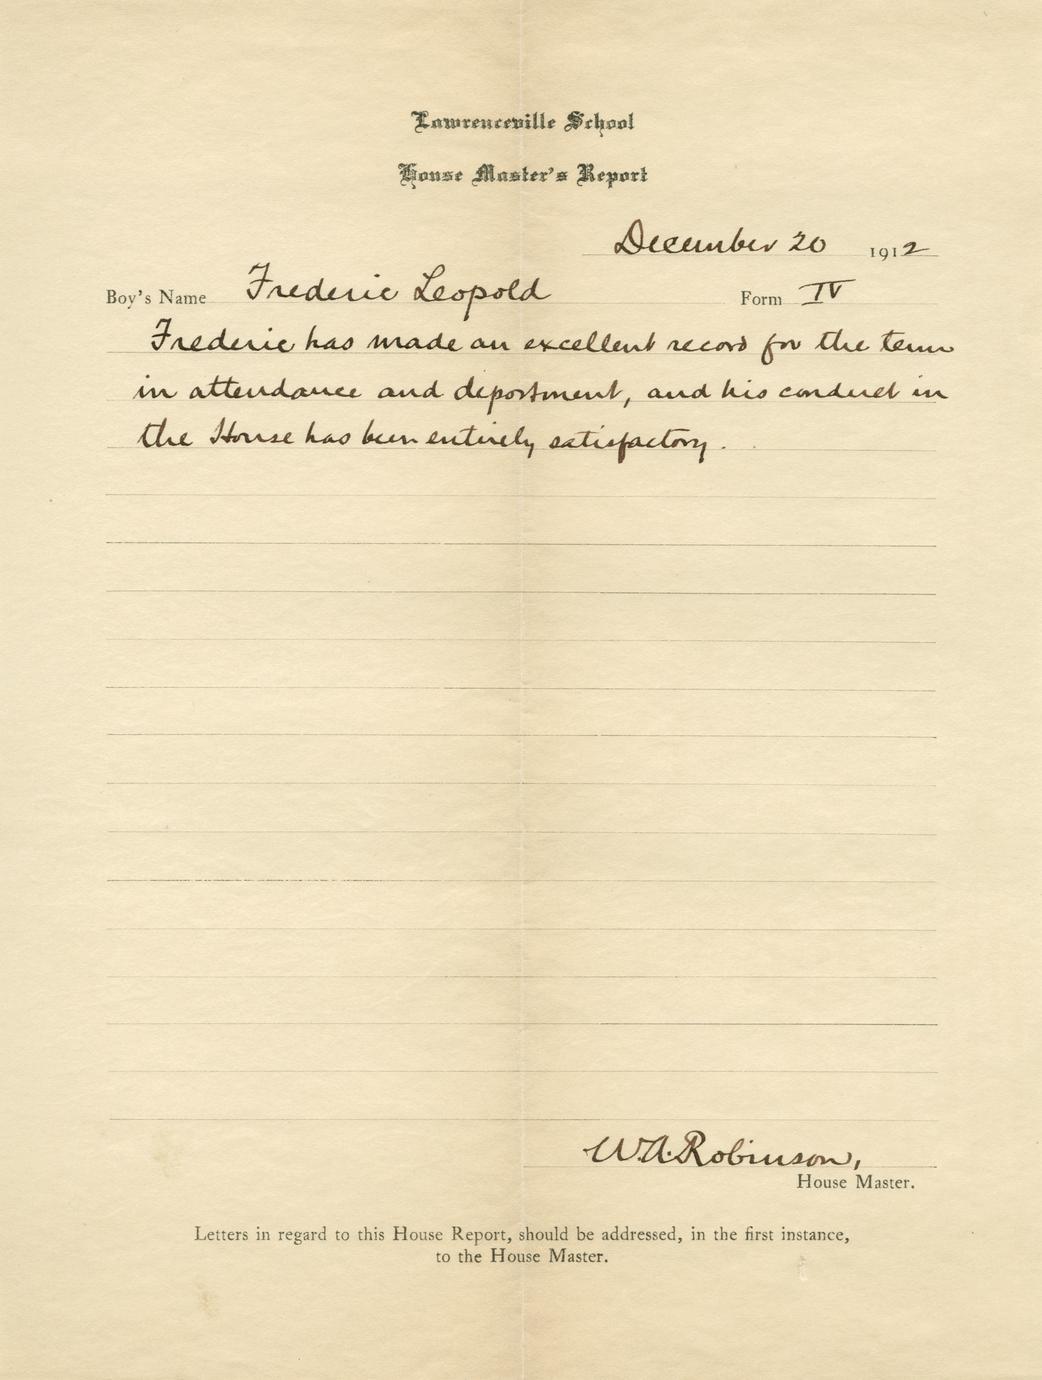 Lawrenceville School
House Master's Report
December 20 1912
Boy's Name Frederic Leopold Form IV
Frederic has made an excellent record for the term
in attendance and deportment, and his conduct in
the House has been entirely satisfactory.
W.A. Robinson,
House Master.
Letters in regard to this House Report, should be addressed, in the first instance,
to the House Master.